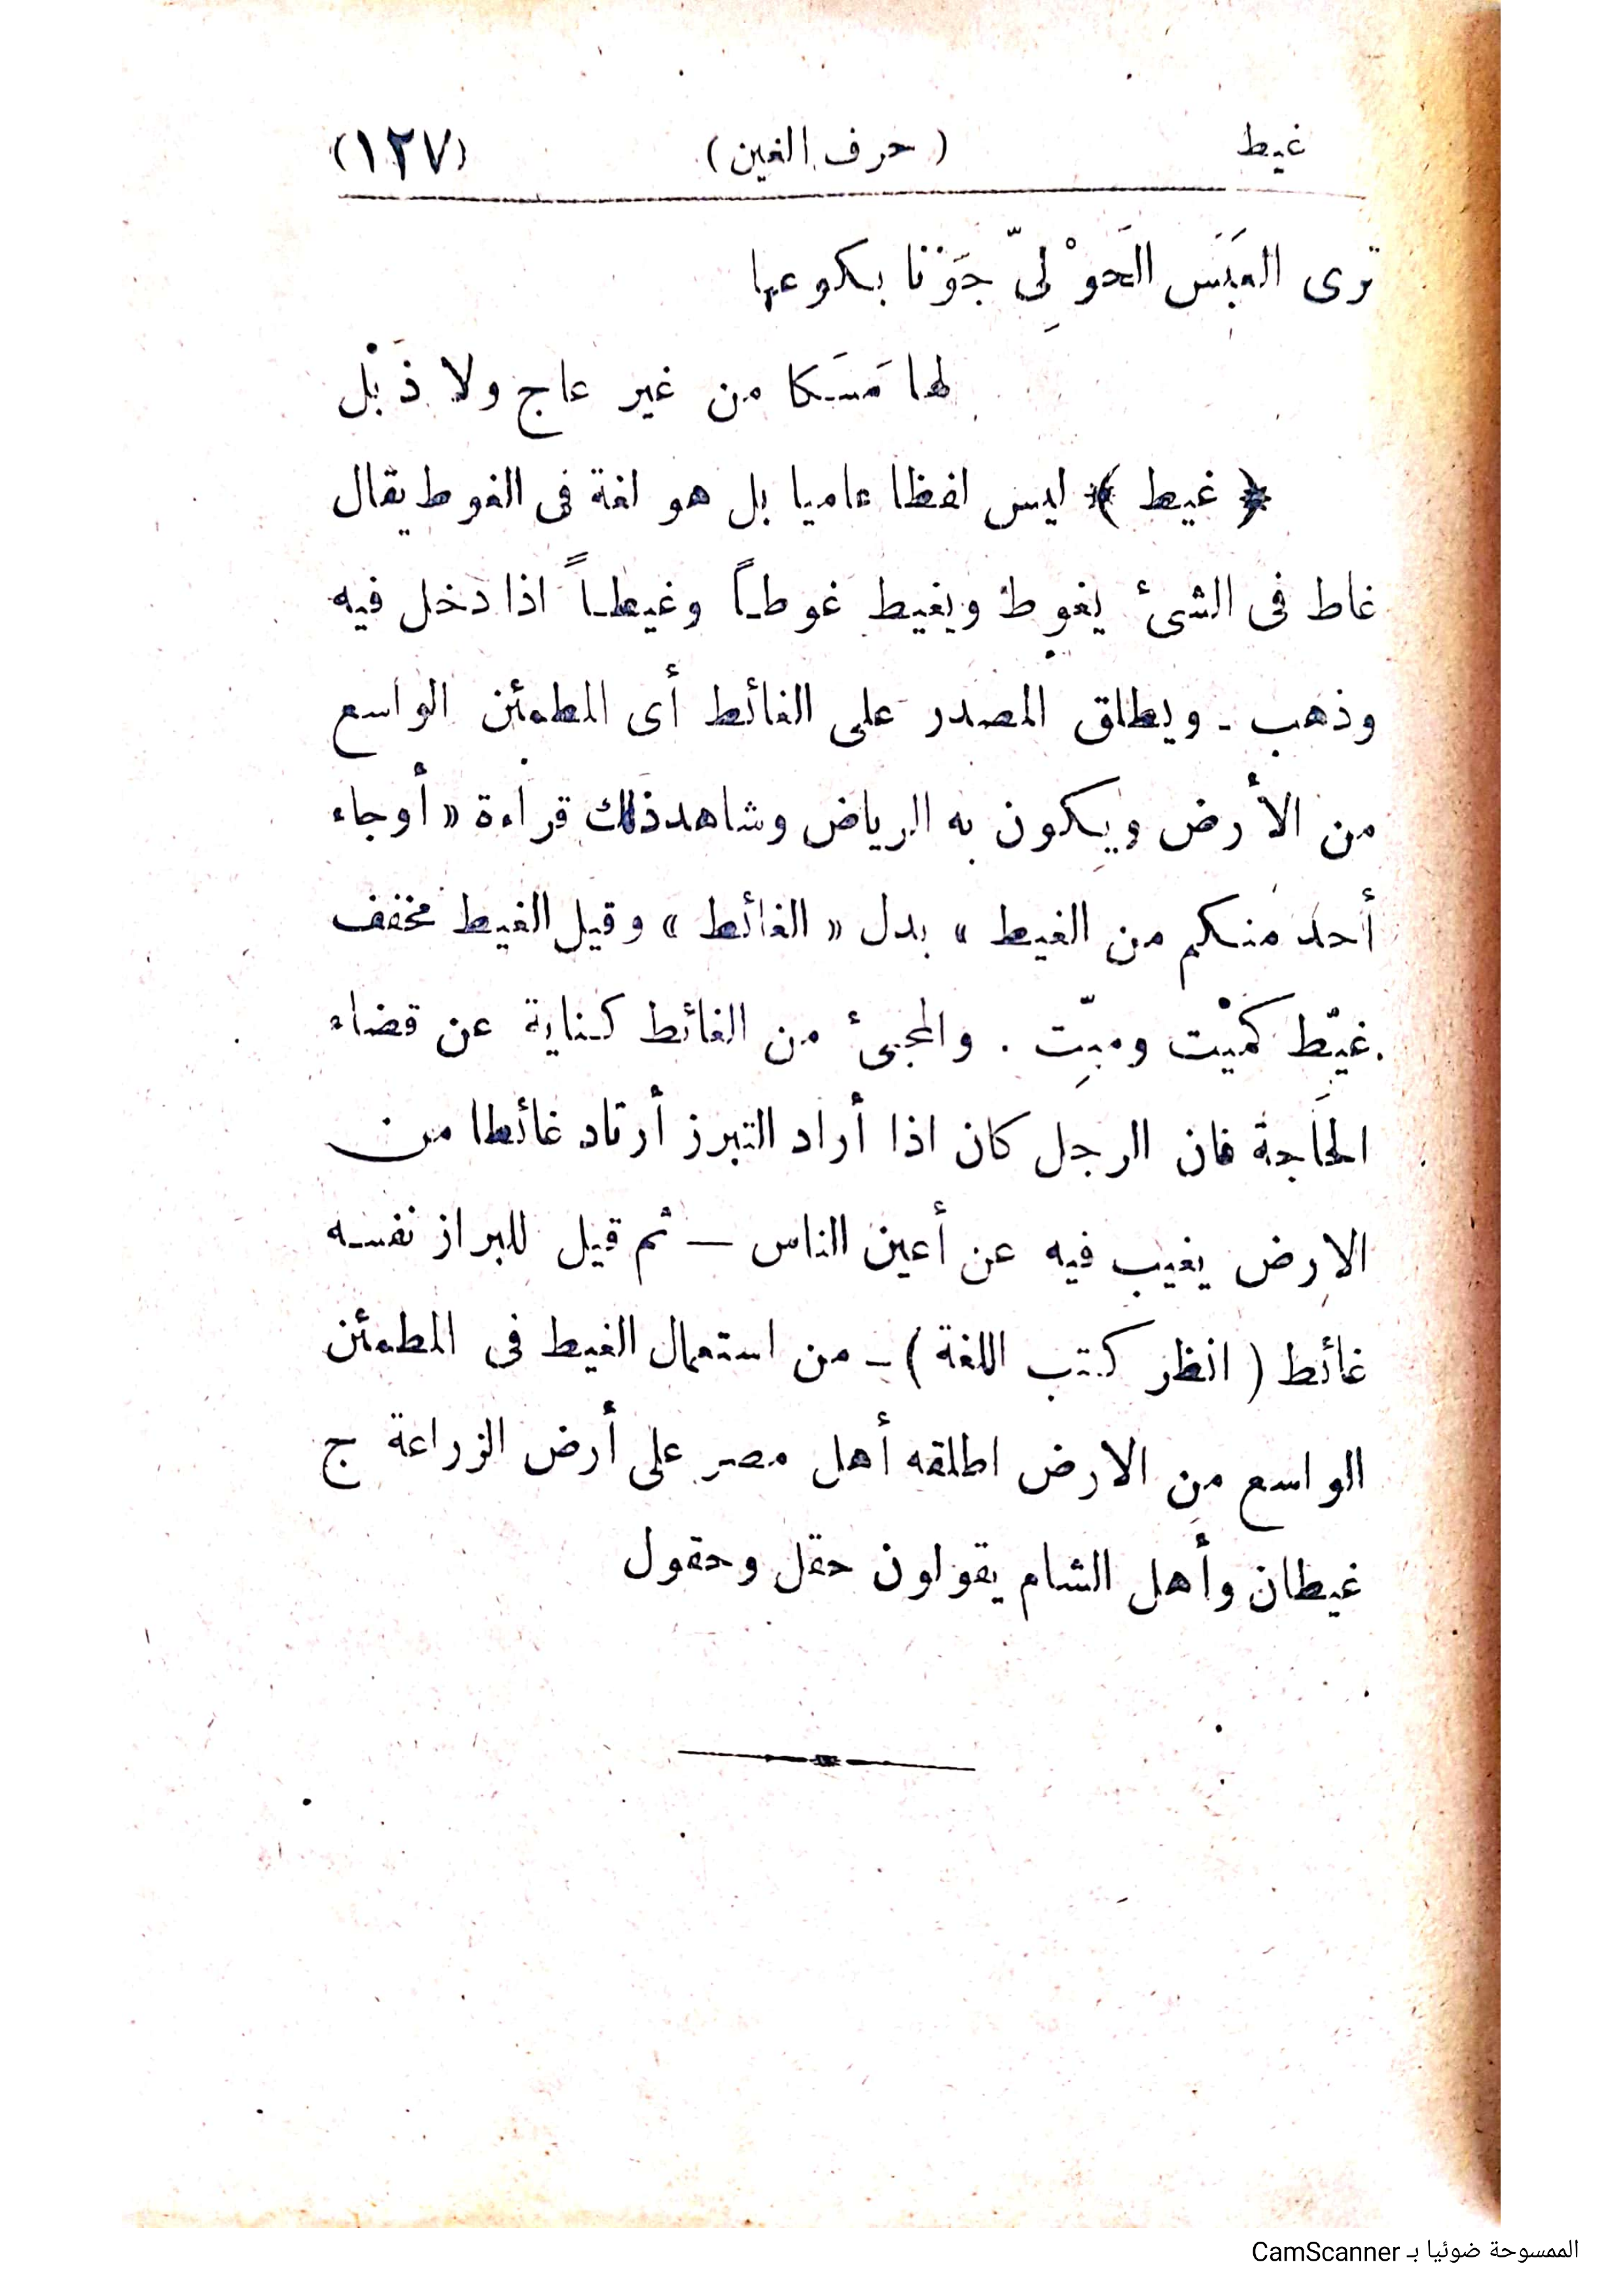 غيط (حرف الغين) (١٢٧)
ترى العَبَسَ الحَوْلِىّ جَوْنا بكوعها
لها مَسَكا من غير عاج ولا ذَبْل
﴿ غيط ﴾ ليس لفظا عاميا بل هو لغة فى الغوط يقال
غاط فى الشىء يغوط ويغيط غوطاً وغيطاً اذا دخل فيه
وذهب ـ ويطلق المصدر على الغائط أى المطمئن الواسع
من الأرض ويكون به الرياض وشاهد ذلك قراءة « أو جاء
أحد منكم من الغيط » بدل « الغائط » وقيل الغيط مخفف
غيّط كمَيْت وميّت . والمجىء من الغائط كناية عن قضاء
الحاجة فان الرجل كان اذا أراد التبرز أرتاد غائطا من
الارض يغيب فيه عن أعين الناس — ثم قيل للبراز نفسه
غائط ( انظر كتب اللغة ) ـ من استعمال الغيط فى المطمئن
الواسع من الارض اطلقه أهل مصر على أرض الزراعة ج
غيطان وأهل الشام يقولون حقل وحقول
الممسوحة ضوئيا بـ CamScanner